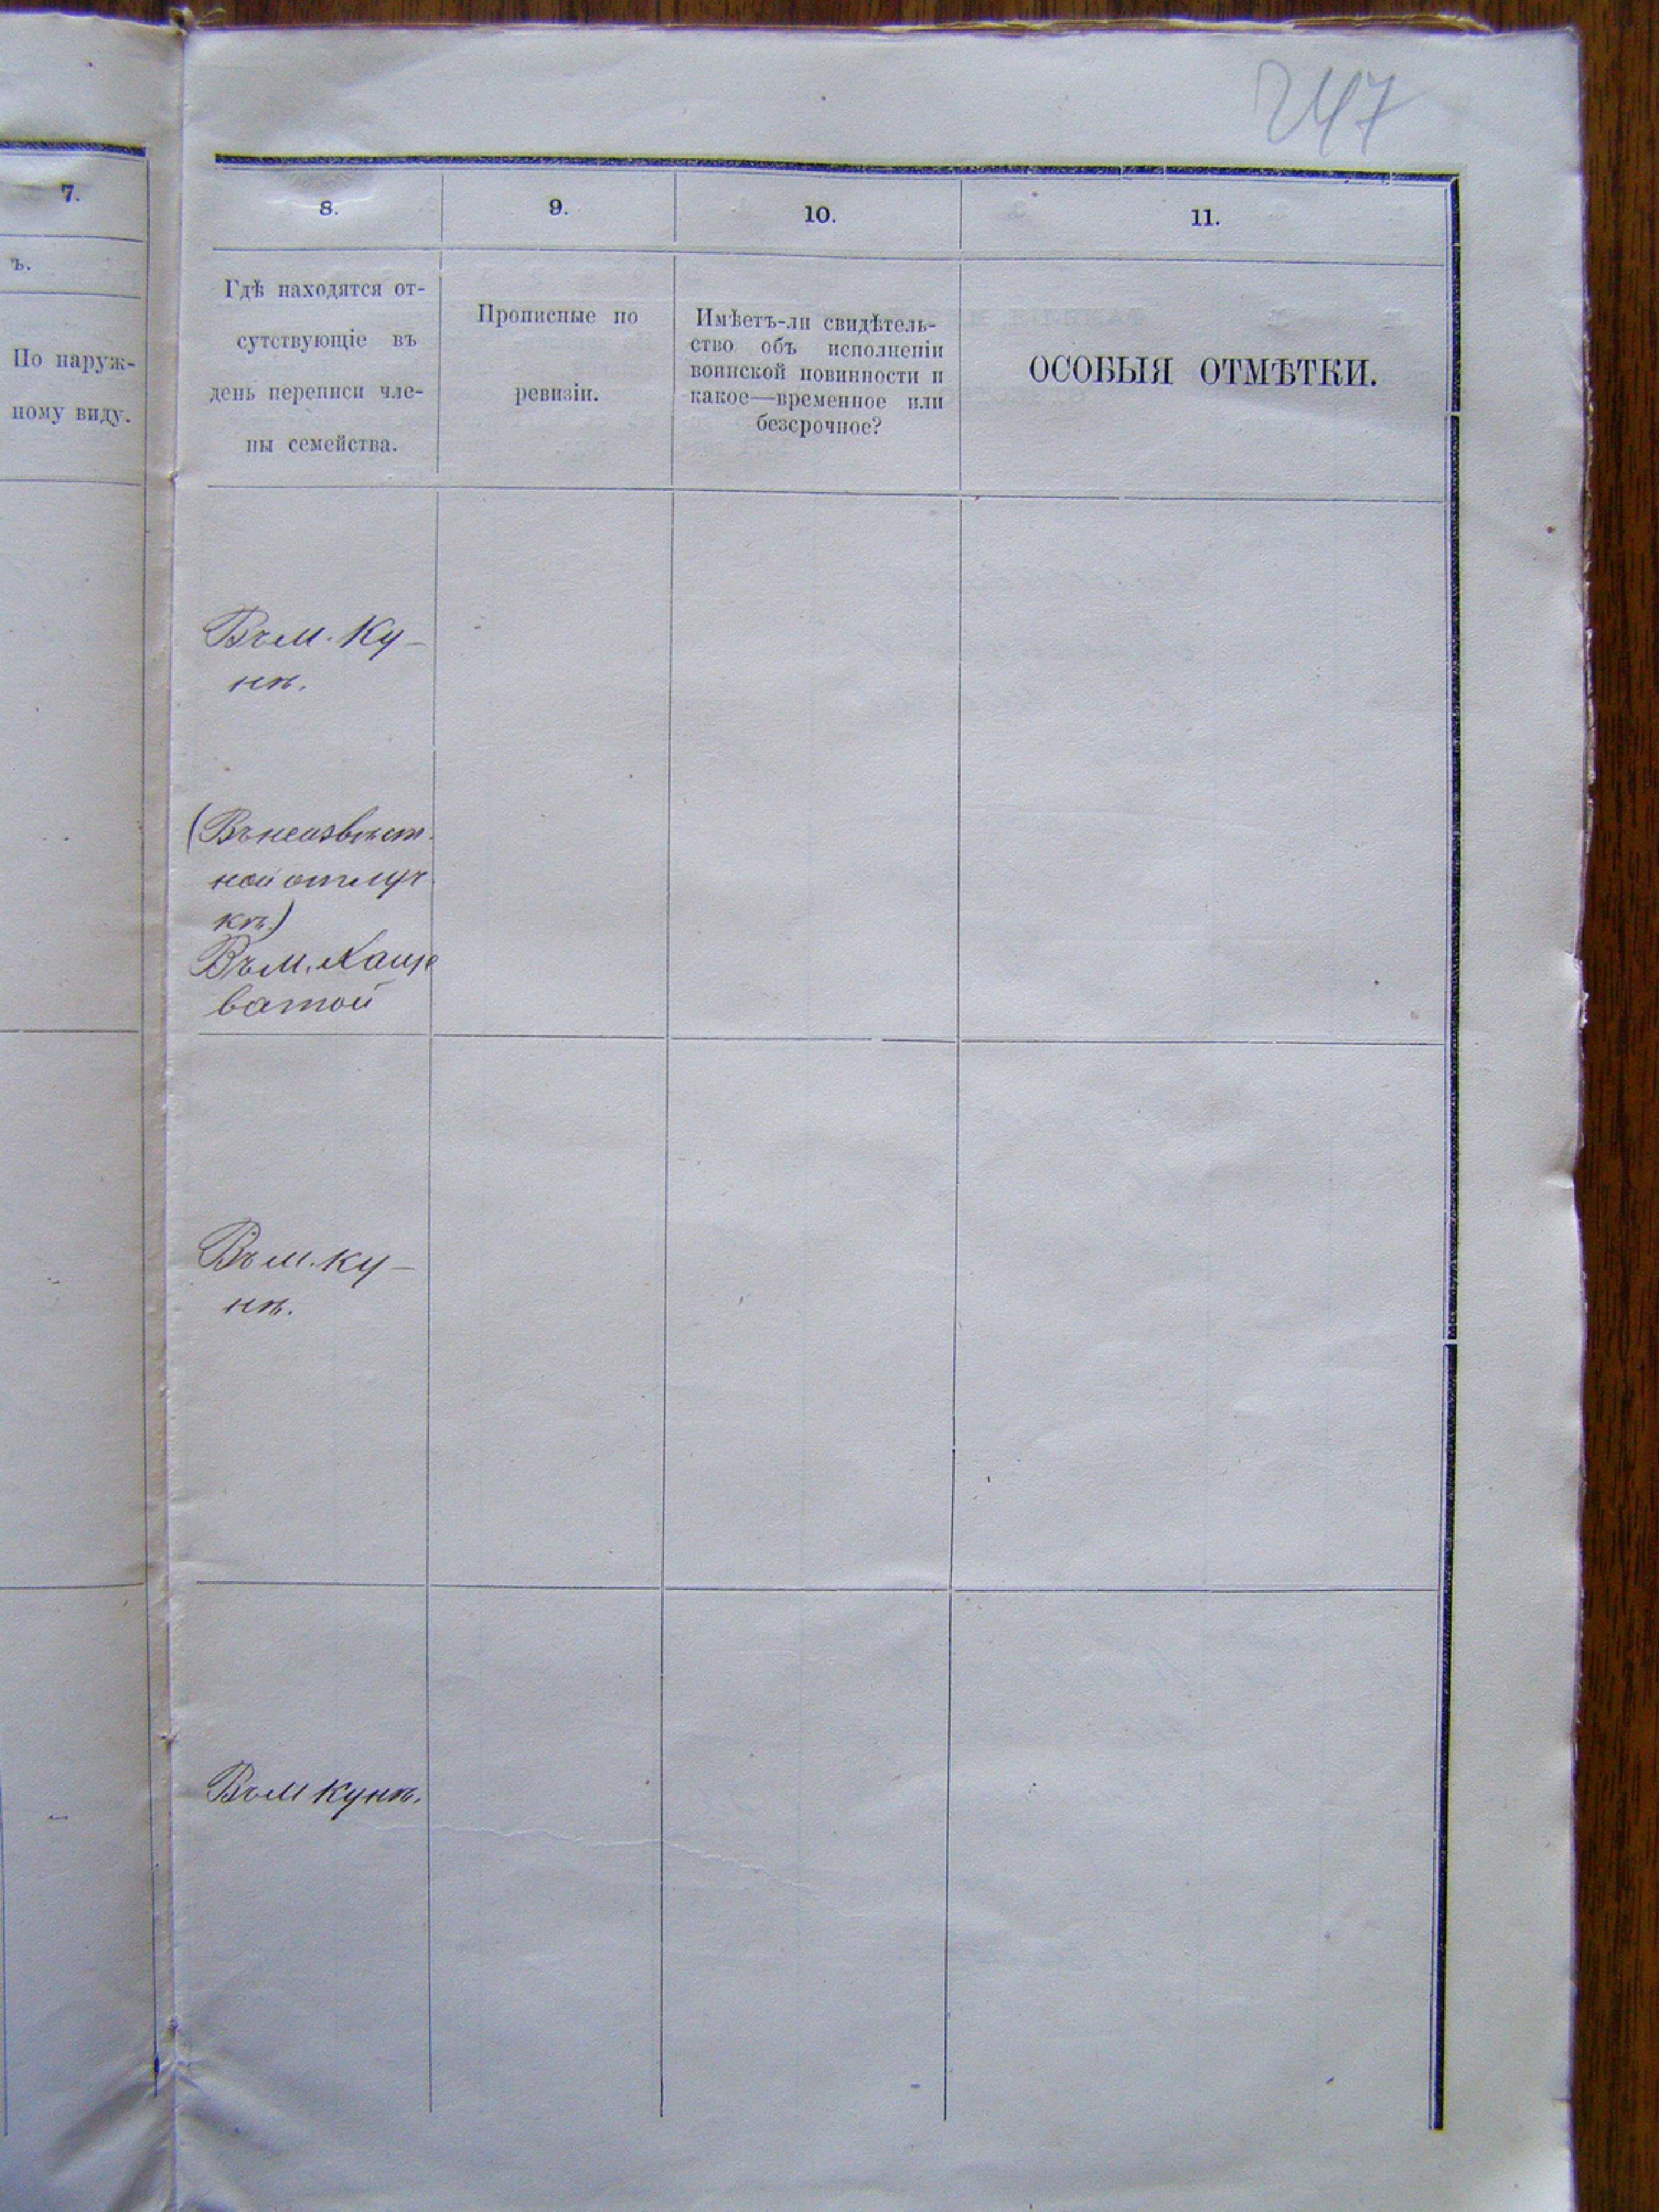 247
7.
ъ.
По наруж-
ному виду.
8.
9.
10.
11.
Гдѣ находятся от-
сутствующіе въ
день переписи чле-
ны семейства.
Прописные по
ревизіи.
Имѣетъ-ли свидѣтель-
ство объ исполненіи
воинской повинности и
какое—временное или
безсрочное?
ОСОБЫЯ ОТМѢТКИ.
Въ м. Ку-
нѣ.
(Въ неизвѣст-
ной отлуч-
кѣ.)
Въ м. Хаще
ватой
Въ м. Ку-
нѣ.
Въ м Кунѣ.